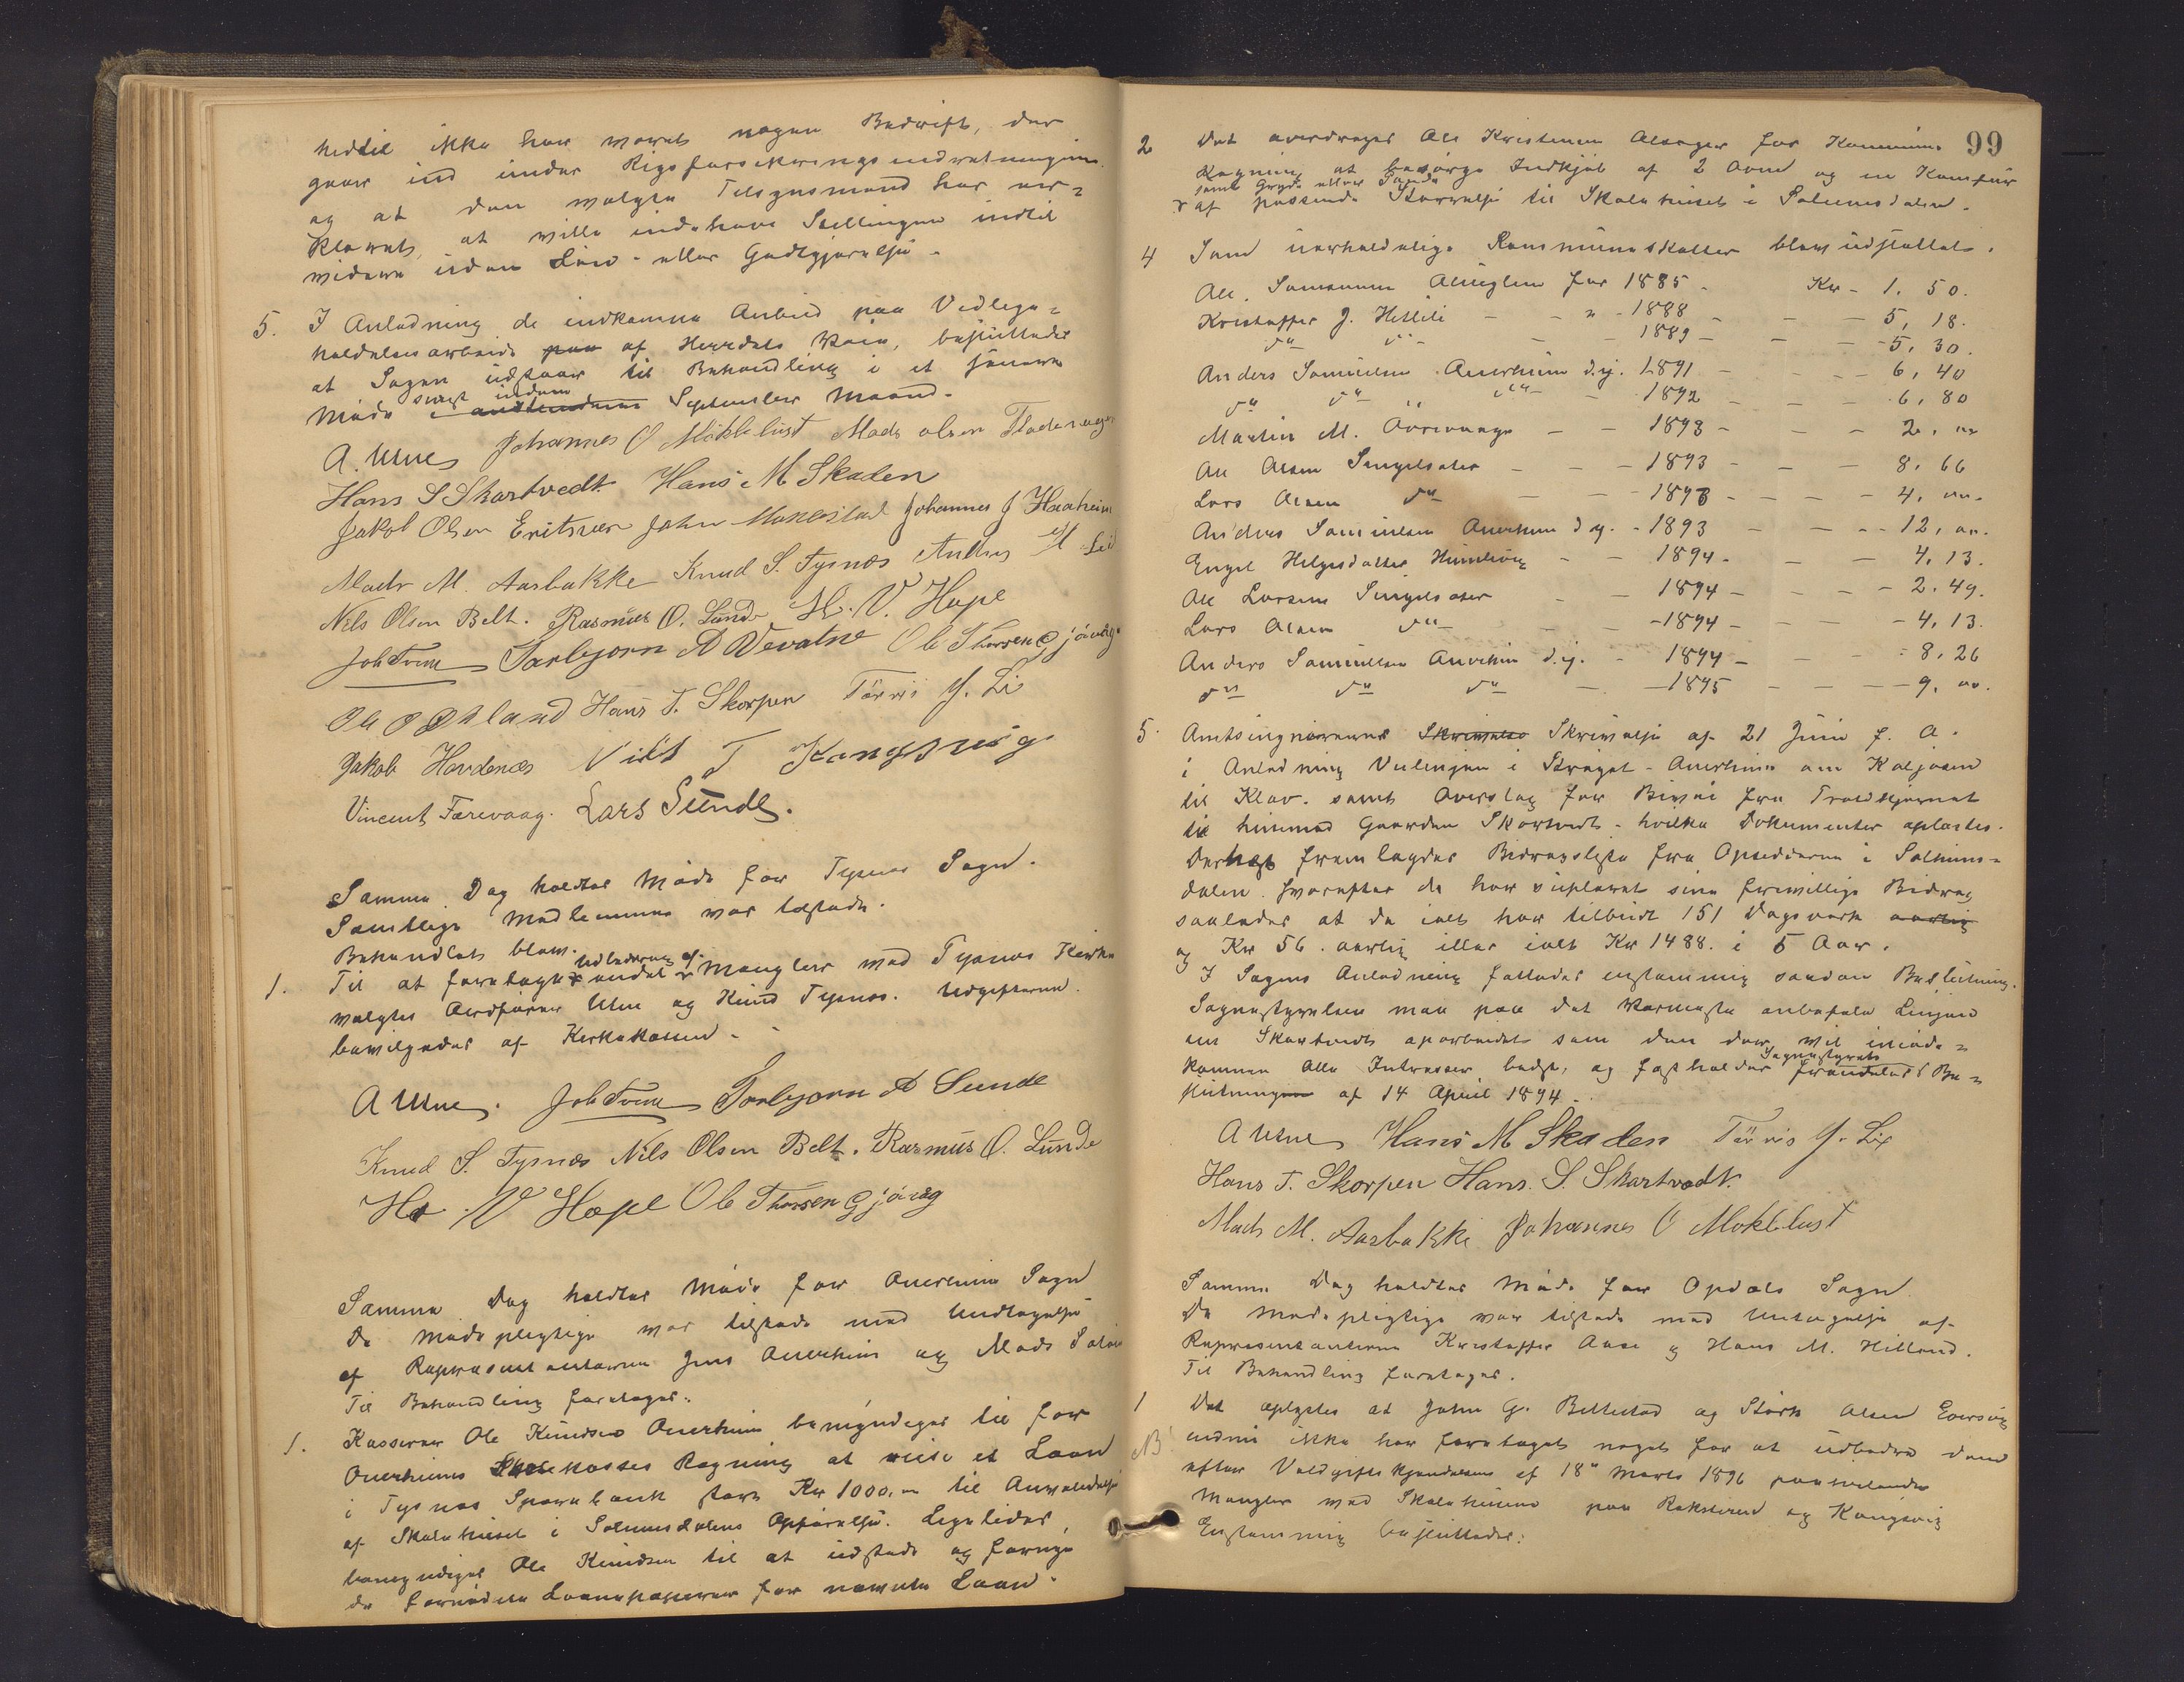 hedtil ikke har været nogen Bedrift, der
gaar ind under Rigsforsikringsindretningen
og at den valgte Tilsynsmand har er-
klæret, at ville indehave Stillingen indtil
videre uden Løn- eller Godtgjørelse.
5. I Anledning de indkomne Anbud paa Vedlige-
holdelsesarbeide paa af Herreds Veie, besluttedes
at Sagen udstaar til Behandling i et senere
Møde senest inden September Maaned.
A. Uene Johannes O Møklebust Mads olsen Fladervaagen
Hans S Skartvedt. Hans M Skaden
Jakob Olsen Eritsvær John Johannes J Haaheim
Mads M. Aarbakke Knud S. Tysnes M Lid
Nils Olsen Belt. Rasmus O. Lunde H. V. Hope
Joh Tveit Torbjørn A Vevatne Ole Thorsen Gjøvåg
Ole O Øpland Hans T. Skorpen Tørris J. Li
Jakob Hovdenæs Nils J Kongsvig
Vincent Færevaag. Lars Sunde.
Samme Dag holdtes Møde for Tysnes Sogn.
Samtlige Medlemmer var tilstede.
Behandlet blev.
1. Til at foretage endel Udbedring af Mangler med Tysnes Kirke
valgtes Ordfører Uene og Knud Tysnes. Udgifterne
bevilgedes af Kirkekassen.
A Uene. Joh Tveit Torbjørn A Sunde
Knud S. Tysnes Nils Olsen Belt. Rasmus O. Lunde
H. V Hope Ole Thorsen Gjøvåg
Samme Dag holdtes Møde for Onerheim Sogn
De mødepligtige var tilstede med Undtagelse
af Repræsentanterne Jens Onerheim og Mads
Til Behandling foretages:
1. Kasserer Ole Knudsen Onerheim bemyndiges til for
Onerheims Skolekasses Regning at reise et Laan
i Tysnes Sparebank stort Kr 1000,00 til Anvendelse
af Skolehuset i Solemsdalens Opførelse. Ligeledes
bemyndiges Ole Knudsen til at udstede og fornye
de fornødne Laanepapirer for nævnte Laan.
99
2 Det overdrages Ole Kristensen Alsager for Kommunens
Regning at besørge Indkjøb af 2 Ovne og en Komfur
samt Gryde eller Pande
af passende Størrelse til Skolehuset i Solemsdalen.
4 Som uerholdelige Kommuneskatter blev udsluttet.
Ole Samsonsen for 1885 - Kr - 1. 50.
Kristoffer J. Hetleli - - " - 1888 - - - 5, 18.
do do - - 1889 - - - 5, 30.
Anders Samuelsen Onerheim d.y. 1891 - - - 6, 40
do do do - 1892 - - - 6, 80
Martin M. - - 1893 - - - 2, 00
Ole Olsen Singelsæter - - - 1893 - - - 8, 66
Lars Olsen do - - - 1893 - - - 4, 00.
Anders Samuelsen Onerheim d y. - 1893 - - - 12, 00.
Engel Helgesdatter - - 1894 - - - 4, 13.
Ole Larsen Singelsæter - - 1894 - - - 2. 49.
Lars Olsen do - - - 1894 - - - 4, 13.
Anders Samuelsen Onerheim d.y. - 1894 - - - 8, 26
do do do - - 1895 - - - 9, 00.
5. Amtsingeniørens Skrivelse Skrivelse af 21 Juni f. A.
i Anledning Veilinjen i Strøget - Onerheim om Koljosen
til Klev. samt Overslag for Bivei fra Troldtjernet
til henimod Gaarden Skartvedt - hvilke Dokumenter oplæstes.
Dernæst fremlagdes Bidragsliste fra Opsidderne i Solheims-
dalen. Hvorefter de har suppleret sine frivillige Bidrag
saaledes at de ialt har tilbudt 151 Dagsverk aarlig
og Kr 56. aarlig eller ialt Kr 1488. i 5 Aar.
I Sagens Anledning fattedes enstemmig saadan Beslutning.
Sognestyrelsen maa paa det varmeste anbefale Linjen
om Skartvedt oparbeidet som den der vil imøde-
komme alle Interesser bedst, og fastholder Sognestyrets Be-
slutning af 14 April 1894.
A Uene Hans M Skaden Tørris J. Li
Hans T. Skorpen Hans. S. Skartvedt.
Mads M. Aarbakke Johannes O Møklebust
Samme Dag holdtes Møde for Opdals Sogn
De mødepligtige var tilstede med Undtagelse af
Repræsentanterne Kristoffer Aase og Hans M. Hilland.
Til Behandling foretages.
1 Det oplystes at John G. Bellestad og Størk Olsen
NB. endnu ikke har foretaget noget for at udbedre den
efter Voldgiftskjendelsen af 18de Marts 1896
Mangler med Skolehusene paa Rakstrand og Kongsvig
Enstemmig besluttedes: